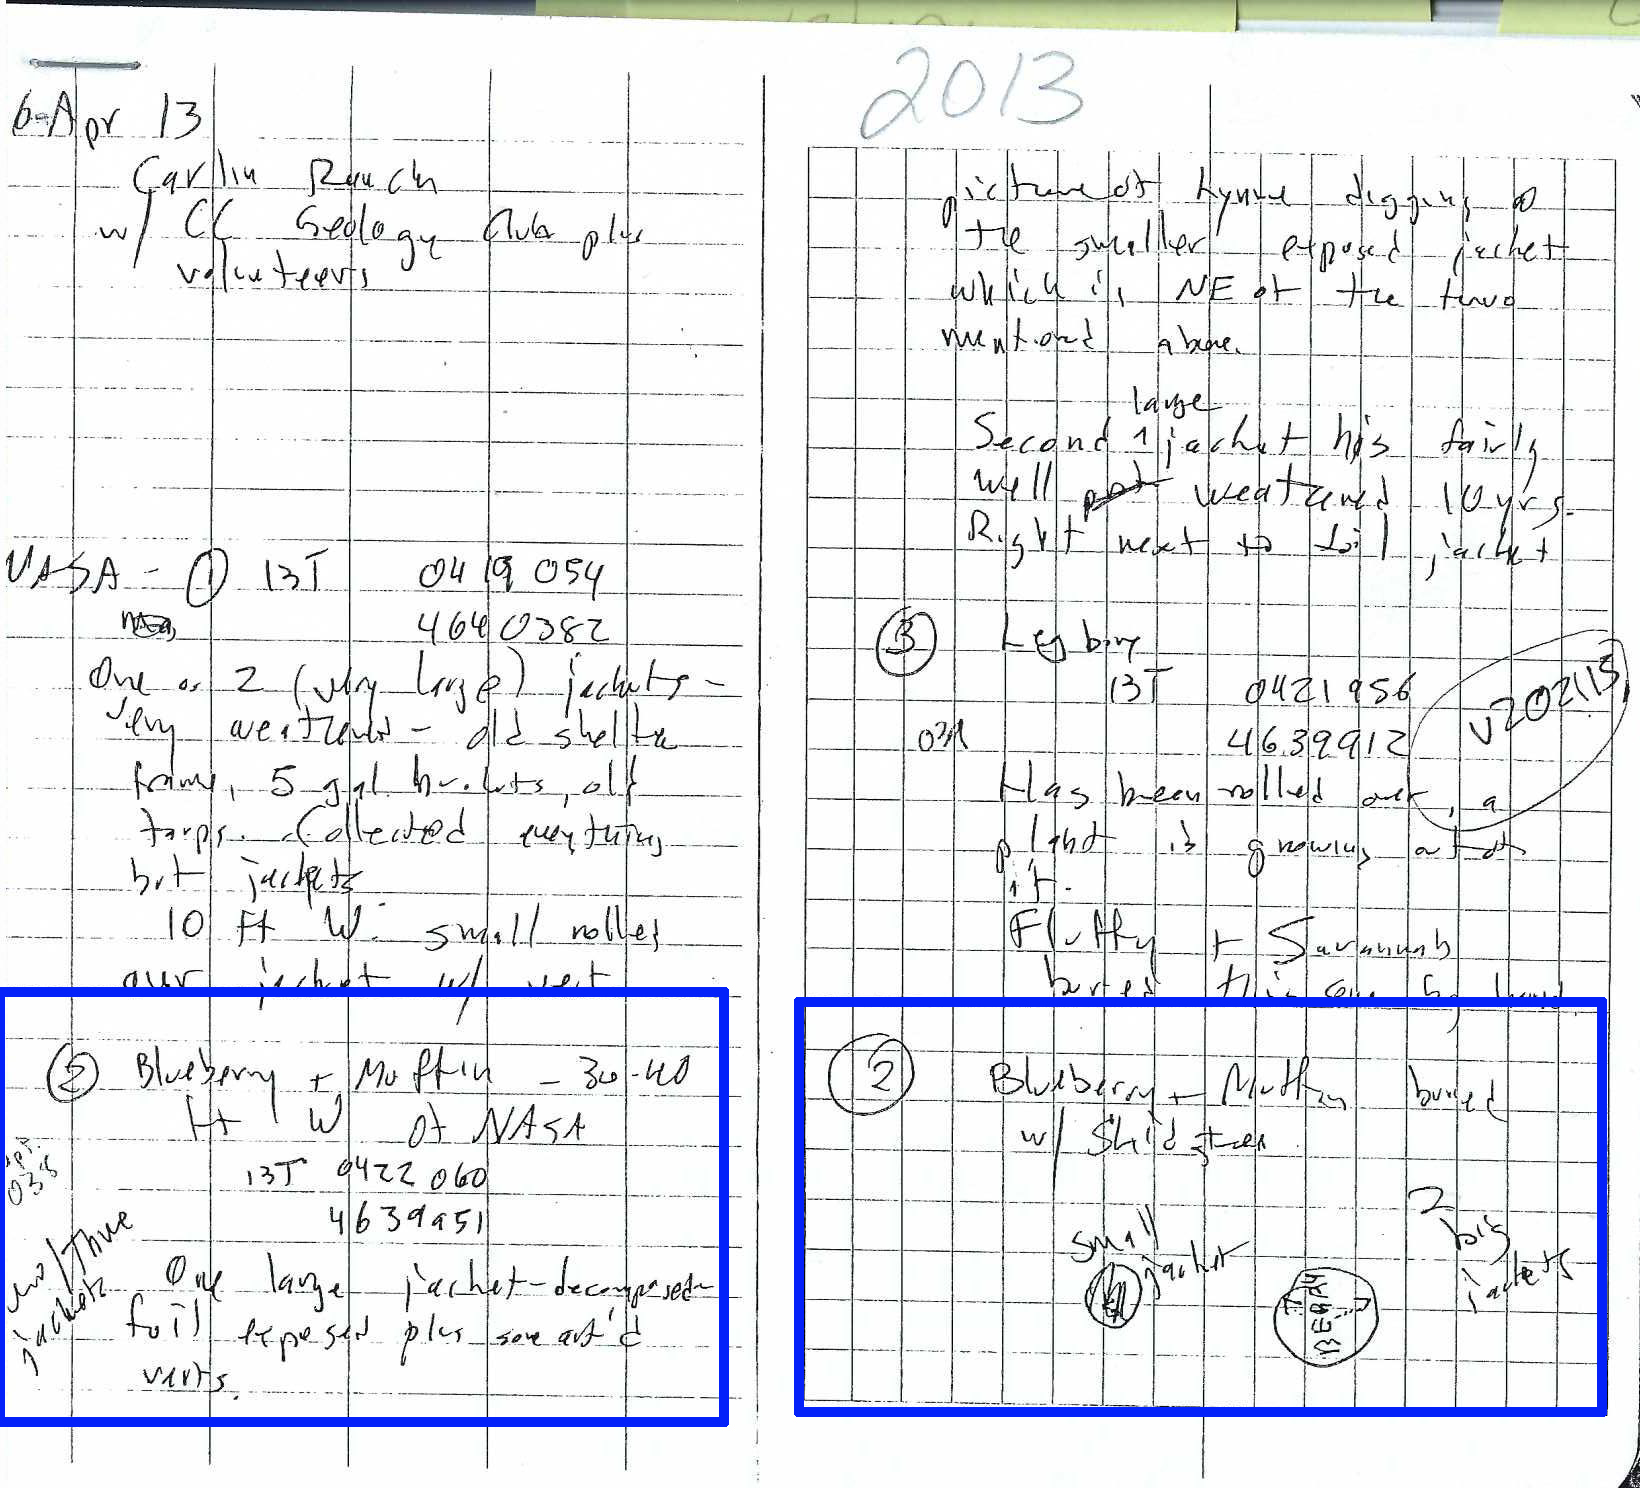 6-Apr 13
Carlin Ranch
w/ CC Geology Club plus
volunteers
NASA - ① 13T 0419 054
4640382
One or 2 (very large) jackets -
very weathered - old shelter
frame, 5 gal buckets, old
tarps. Collected everything
but jackets
10 ft W. small rolled
over jacket w/ vert
② Blueberry + Muffin - 30-40
ft W of NASA
13T 0422 060
4639951
038
two/three
jackets
One large jacket-decomposed-
foil exposed plus some art'd
verts.
2013
picture of Lynne digging @
the smaller exposed jacket
which is NE of the two
mentioned above.
large
Second 1 jacket his fairly
well weathered 10 yrs.
Right next to foil jacket
③ Leg bone
13T 0421956
031 4639912
V202115
Has been rolled over, a
plant is growing out of
it.
Fluffy + Savannah
buried this one by hand
② Blueberry + Muffin buried
w/ Skid steer
small
jacket
2
big
jackets